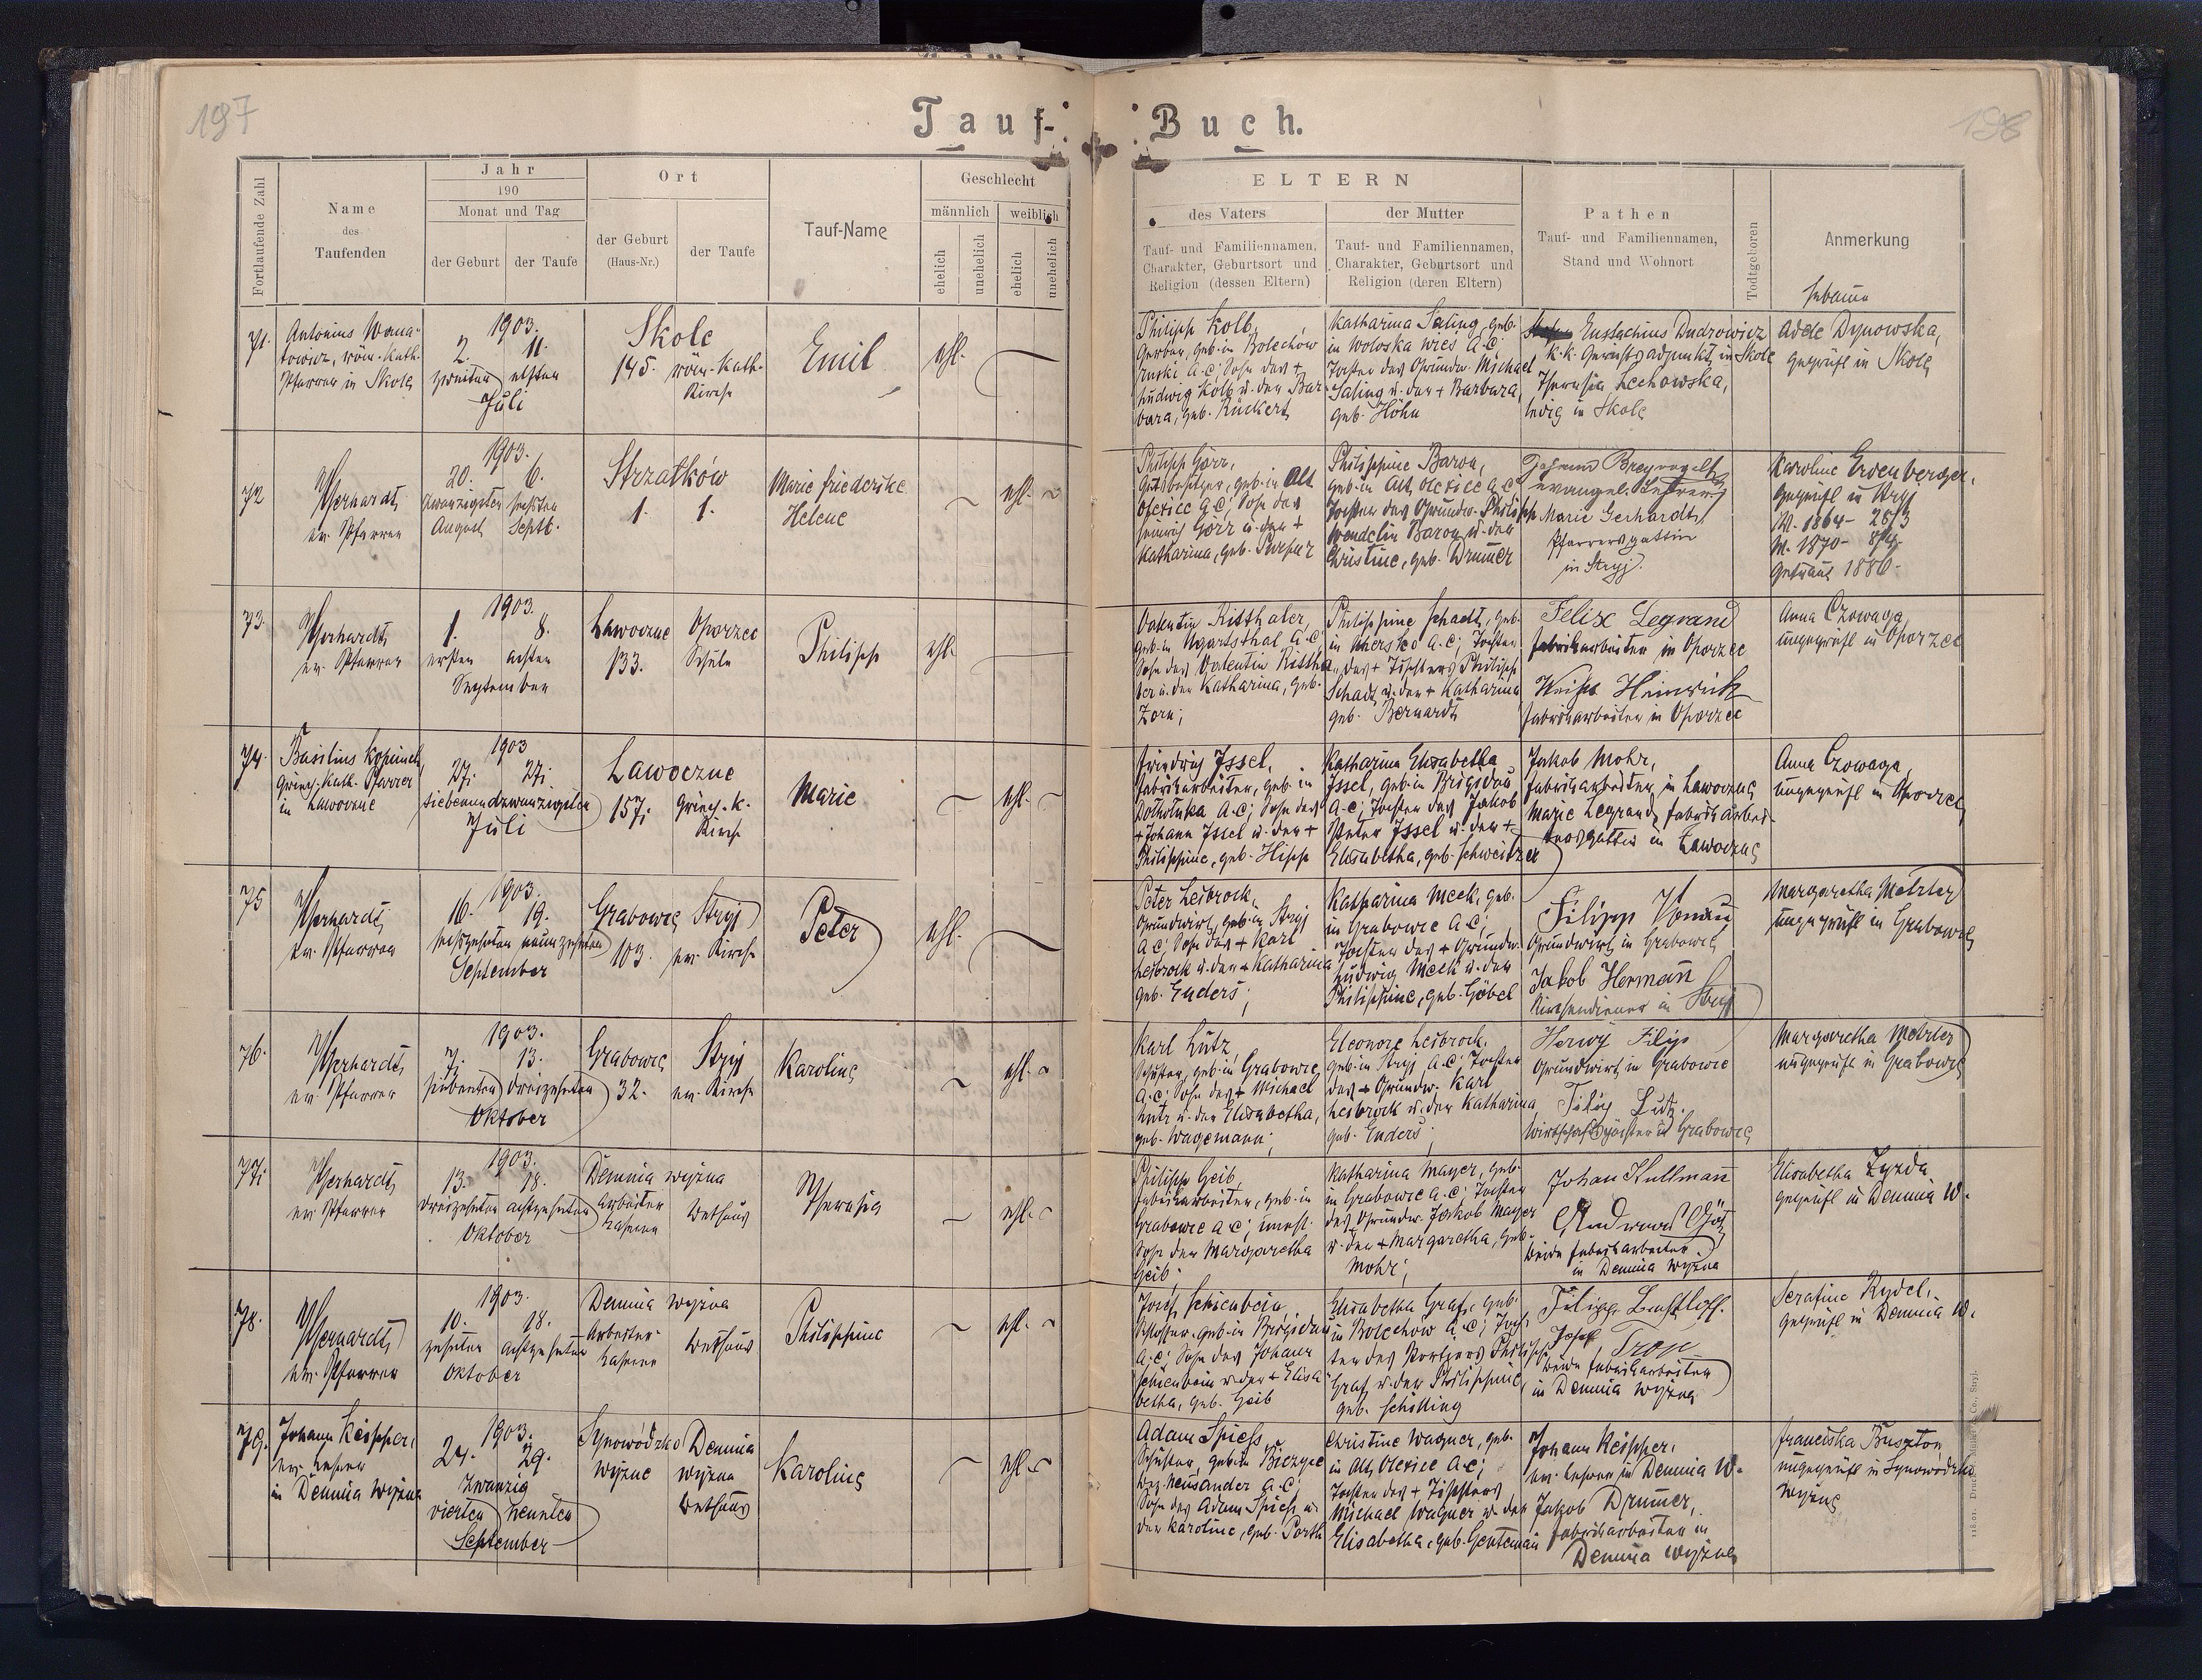 197
198
Tauf-Buch.
Fortlaufende Zahl
Name
des
Taufenden
Jahr
190
Monat und Tag
der Geburt
der Taufe
Ort
der Geburt
(Haus-Nr.)
der Taufe
Tauf-Name
Geschlecht
männlich
weiblich
ehelich
unehelich
ehelich
unehelich
ELTERN
des Vaters
Tauf- und Familiennamen,
Charakter, Geburtsort und
Religion (dessen Eltern)
der Mutter
Tauf- und Familiennamen,
Charakter, Geburtsort und
Religion (deren Eltern)
Pathen
Tauf- und Familiennamen,
Stand und Wohnort
Todtgeboren
Anmerkung
Hebamme
71.
Antonius
röm. kath.
Pfarrer in Skole
1903.
2. 11.
zweiten elften
Juli
Skole
145. röm.-kath.
Kirche
Emil
ehl.
Philipp Kolb,
Gerber, geb. in Bolechów
ruski A.C.; Sohn des +
Ludwig Kolb u. der Bar-
bara, geb. Rückert
Katharina Saling, geb.
in Woloska wies A.C.
Tochter des Grundw. Michael
Saling u. der + Barbara,
geb. Höhn
Eustachius Dudrowicz
k.k. Gerichtsadjunkt in Skole
Theresia Lechowska,
ledig in Skole
Adele Dynowska,
geprüft in Skole
72
Gerhardt,
ev. Pfarrer
1903.
20. 6.
zwanzigsten sechsten
August Septb.
Strzalków
1. 1.
Marie Friederike
Helene
ehl.
Philipp Görz,
Gutsbesitzer, geb. in Alt
Olexice A.C; Sohn des
Heinrich Görz u. der +
Katharina, geb.
Philippine Baron,
geb. in Alt Olexice A.C
Tochter des Grundw. Philipp
Wendelin Baron u. der
Christine, geb. Drumer
Johann Breyvogel
evangel. Lehrer
Marie Gerhardt,
Pfarrersgattin
in Stryj.
Karoline Ervenberger,
geprüft in Stryj
M. 1864 - 28/3
M. 1870 - 8/4
Getraut 1886.
73.
Gerhardt,
ev. Pfarrer
1903.
1. 8.
ersten achten
September
Lawoczne Oporzec
133. Schule
Philipp
ehl.
Valentin Ritthaler,
geb. in Ugartsthal A.C.
Sohn des Valentin Rittha-
ler u. der Katharina, geb.
Zorn;
Philippine Schadt, geb.
in Wiersko A.C; Tochter
des + Tischlers Philipp
Schadt u. der + Katharina
geb. Bernardt
Felix Legrand
Fabriksarbeiter in Oporzec
Weiss Heinrich
Fabriksarbeiter in Oporzec
Anna Czowaga,
ungeprüft in Oporzec
74.
Basilius
Griech.-kath. Pfarrer
in Lawoczne
1903
27. 27.
siebenundzwanzigsten
Juli
Lawoczne
157. Griech.-k.
Kirche
Marie
ehl.
Friedrich Issel,
Fabriksarbeiter, geb. in
A.C; Sohn des
+ Johann Issel u. der +
Philippine, geb. Hipp
Katharina Elisabetha
Issel, geb. in Brigidau
A.C; Tochter des Jakob
Peter Issel u. der +
Elisabetha, geb. Schweitzer
Jakob Mohr,
Fabriksarbeiter in Lawoczne
Marie Legrand, Fabriksarbei-
tersgattin in Lawoczne
Anna Czowaga,
ungeprüft in Oporzec
75
Gerhardt,
ev. Pfarrer
1903.
16. 19.
sechzehnten neunzehnten
September
Grabowce Stryj
103. ev. Kirche
Peter
ehl.
Peter Leibrock,
Grundwirt, geb. in Stryj
A.C; Sohn des + Karl
Leibrock u. der + Katharina
geb. Enders;
Katharina Meck, geb.
in Grabowce A.C;
Tochter des + Grundw.
Ludwig Meck u. der
Philippine, geb. Göbel
Filipp
Grundwirt in Grabowce
Jakob Hermann
Kirchendiener in Stryj
Margaretha Metzler
ungeprüft in Grabowce
76.
Gerhardt,
ev. Pfarrer
1903.
7. 13.
siebenten dreizehnten
Oktober
Grabowce Stryj
32. ev. Kirche
Karoline
ehl.
Karl Lutz,
Schuster, geb. in Grabowce
A.C; Sohn des + Michael
Lutz u. der Elisabetha,
geb. Wagemann;
Eleonore Leibrock,
geb. in Stryj A.C; Tochter
des + Grundw. Karl
Leibrock u. der Katharina,
geb. Enders;
Herwy Filip
Grundwirt in Grabowce
Filip Lutz
in Grabowce
Margaretha Metzler
ungeprüft in Grabowce
77.
Gerhardt,
ev. Pfarrer
1903.
13. 18.
dreizehnten achtzehnten
Oktober
Demnia wyżna
Arbeiter Bethaus
kaserne
Theresia
ehl.
Philipp Geib,
Fabriksarbeiter, geb. in
Grabowce A.C; unehl.
Sohn der Margaretha
Geib;
Katharina Mayer, geb.
in Grabowce A.C; Tochter
des Grundw. Jakob Mayer
u. der + Margaretha, geb.
Mohr;
Johan Kullmann
Götz
beide Fabriksarbeiter
in Demnia wyżna
Elisabetha Zyzda
geprüft in Demnia W.
78.
Gerhardt,
ev. Pfarrer
1903.
10. 18.
zehnten achtzehnten
Oktober
Demnia wyżna
Arbeiter- Bethaus
kaserne
Philippine
ehl.
Josef Schienbein,
Schlosser, geb. in Brigidau
A.C; Sohn des Johann
Schienbein u. der + Elisa
betha, geb. Geib
Elisabetha Graf, geb.
in Bolechow A.C; Toch-
ter des Portiers Philipp
Graf u. der Philippine,
geb. Schilling
Filipp
Josef Trop
beide Fabriksarbeiter
in Demnia wyżna
Serafine Rydel,
geprüft in Demnia W.
79.
Johann Keipper,
ev. Lehrer
in Demnia wyżna
1903.
24. 29.
zwanzig
vierten neunten
September
Synowódzko Demnia
wyżne wyżna
Bethaus
Karoline
ehl.
Adam Spiess
Schuster, geb. in
Bez. Neusandez A.C;
Sohn des Adam Spiess u.
der Karoline, geb. Porth
Christine Wagner, geb.
in Alt Olexice A.C;
Tochter des + Tischlers
Michael Wagner u. der
Elisabetha, geb. Gentemann
Johann Keipper,
ev. Lehrer in Demnia W.
Jakob Drumer,
Fabriksarbeiter in
Demnia wyżna
Franciska Buszton
ungeprüft in Synowódzko
wyżne